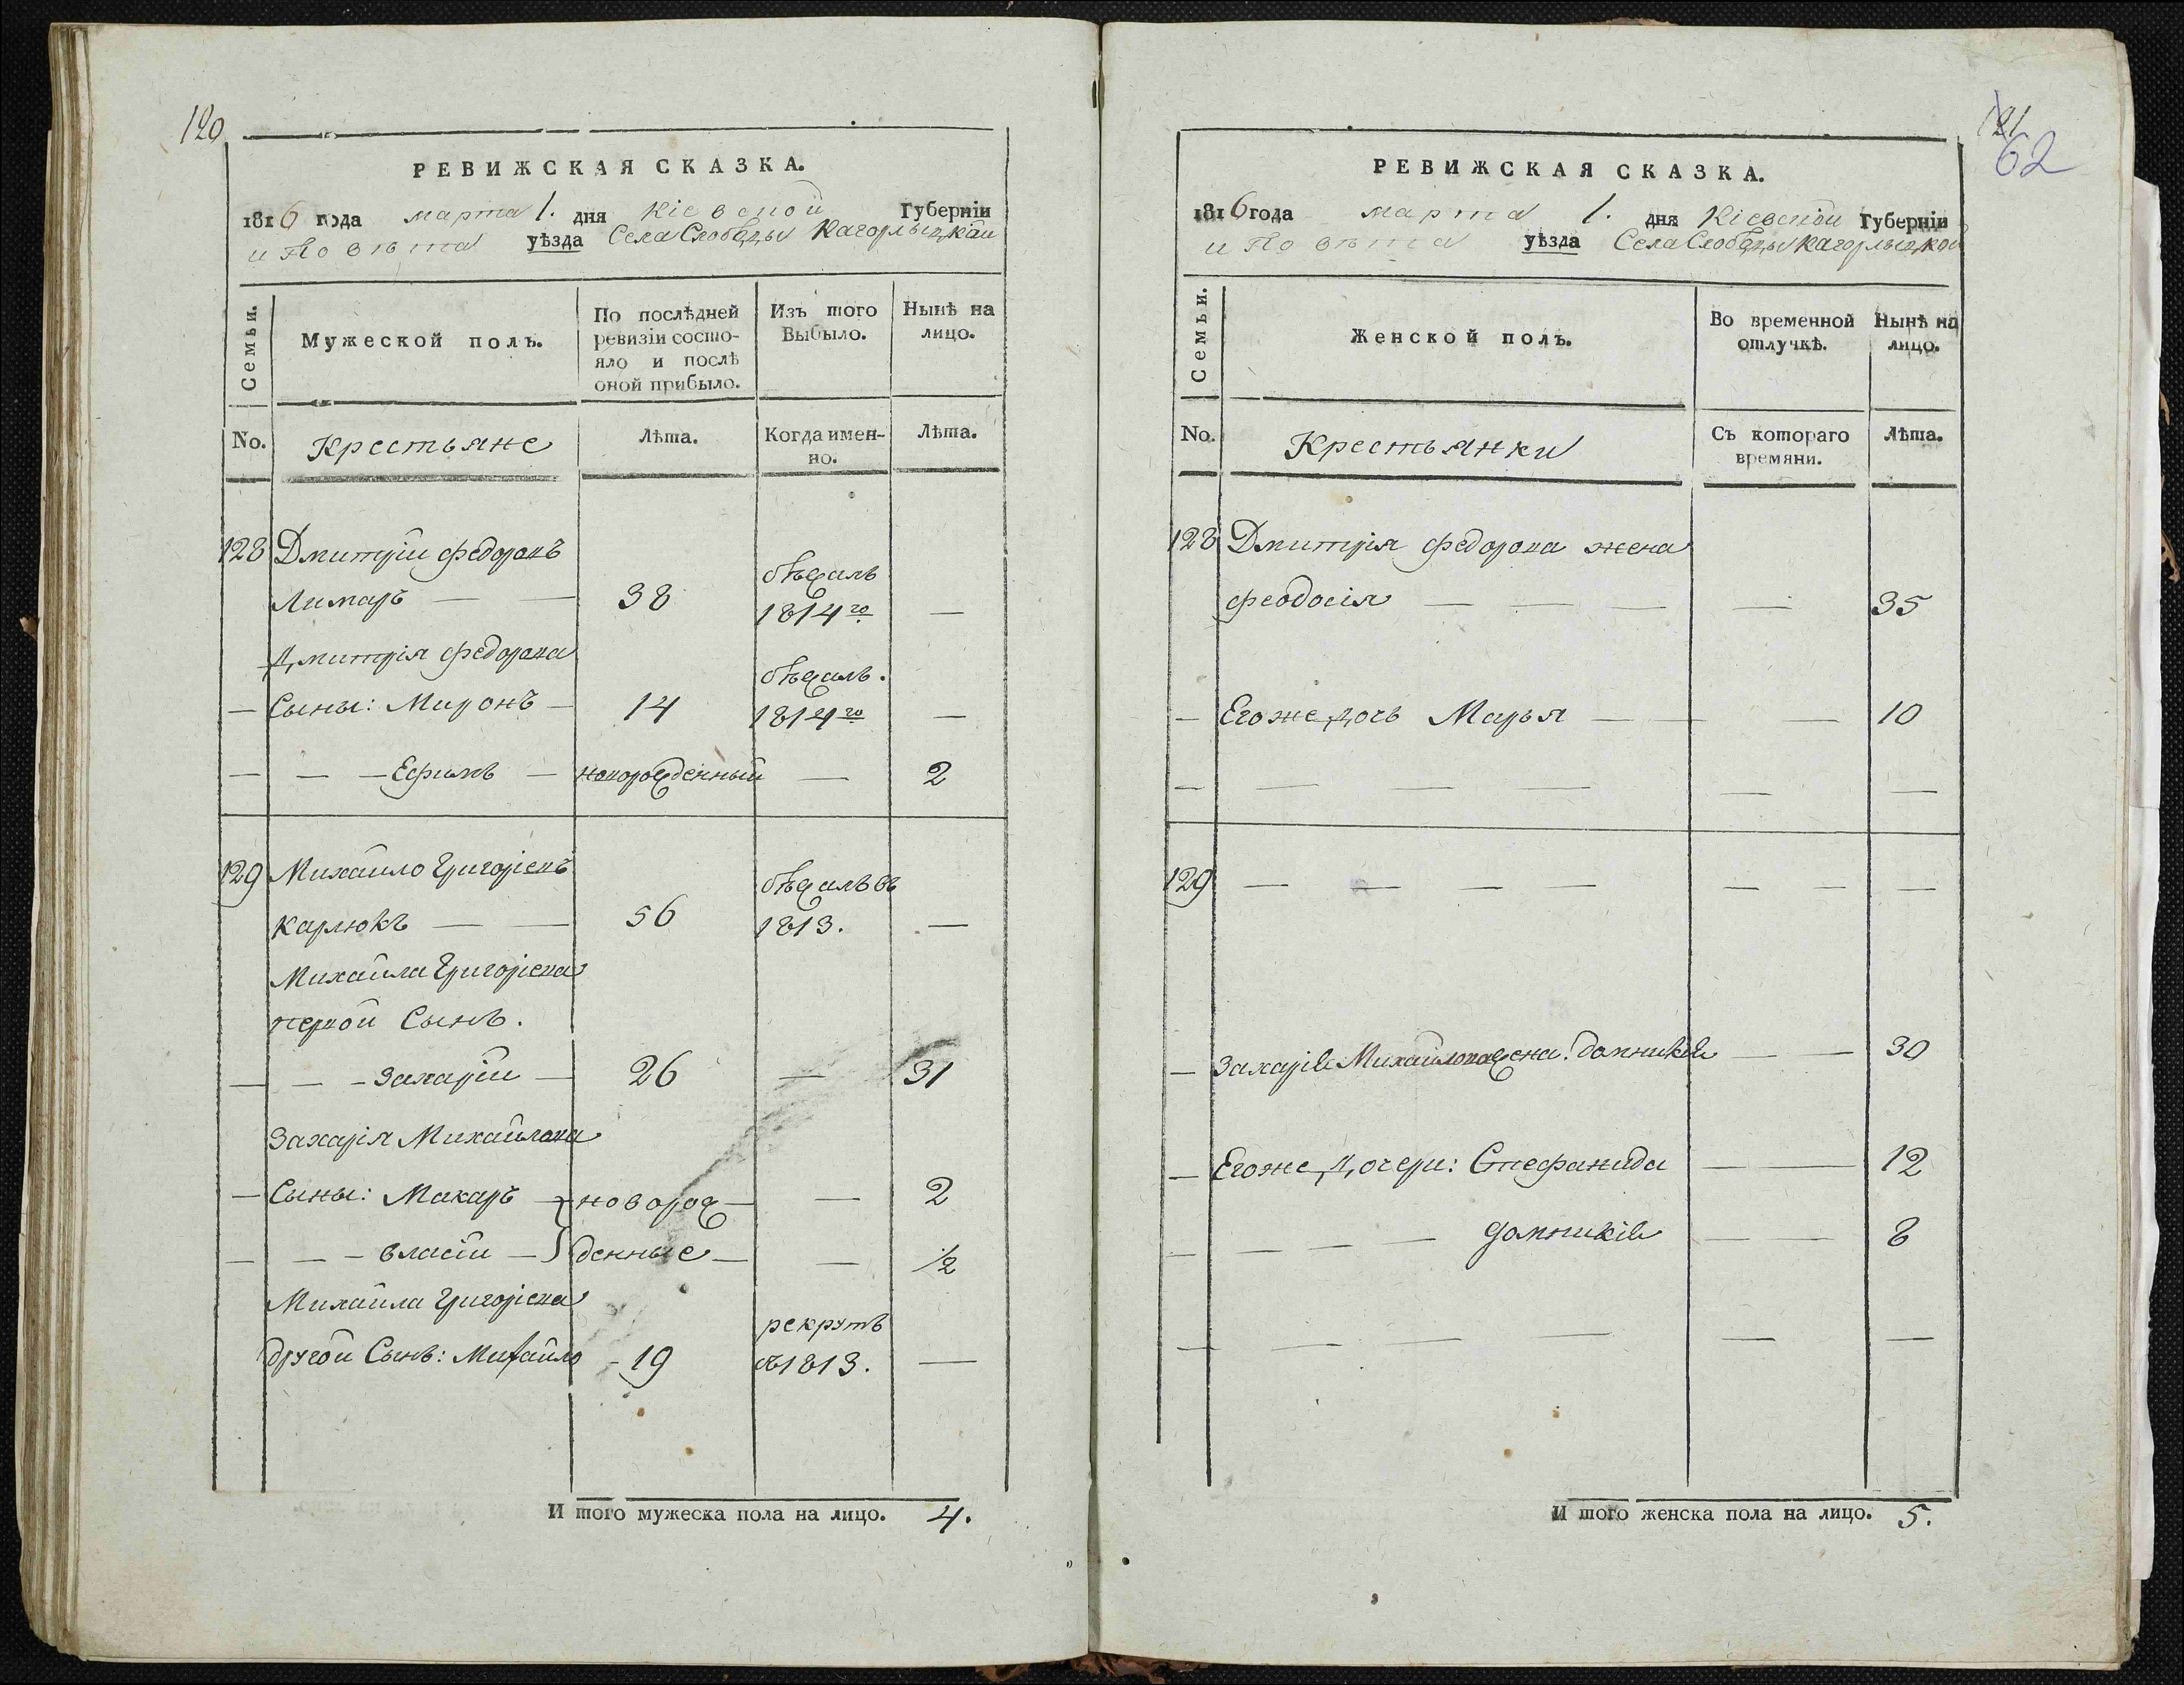 120
РЕВИЖСКАЯ СКАЗКА.
1816 года марта 1. дня Кіевской Губерніи
и Повѣта уѣзда Села Слободы Кагорлыцкой
Семьи.
Мужеской полъ.
По послѣдней
ревизіи состо-
яло и послѣ
оной прибыло.
Изъ того
Выбыло.
Нынѣ на
лицо.
No.
Крестьяне
Лѣта.
Когда имен-
но.
Лѣта.
128 Дмитрій Федоровъ
Лимаръ — — 38 бѣжалъ 1814го —
Дмитрія Федорова
— Сыны: Миронъ — 14 бѣжалъ. 1814го —
— — — Ефимъ — новорожденный — 2
129 Михайло Григоріевъ
Карлюкъ — — 56 бѣжалъ въ 1813. —
Михайла Григоріева
первой Сынъ.
— — — Захарій — 26 — 31
Захарія Михайлова
— Сыны: Макаръ — новорож — — 2
— — — Власій — денные — — 1/2
Михайла Григоріева
другой Сынъ: Михайло - 19 рекрутъ въ 1813. —
И того мужеска пола на лицо. 4.
121
62
РЕВИЖСКАЯ СКАЗКА.
1816 года марта 1. дня Кіевской Губерніи
и Повѣта уѣзда Села Слободы Кагорлыцкой
Семьи.
Женской полъ.
Во временной
отлучкѣ.
Нынѣ на
лицо.
No.
Крестьянки
Съ котораго
времяни.
Лѣта.
128 Дмитрія Федорова жена
Феодосія — — — — 35
— Егоже дочь Марья — — — 10
— — — — — —
129 — — — — — — —
— Захарія Михайлова жена: Домникія — — 30
— Егоже Дочери: Стефанида — — 12
— — — — — Домникія — — 8
— — — — — —
И того женска пола на лицо. 5.